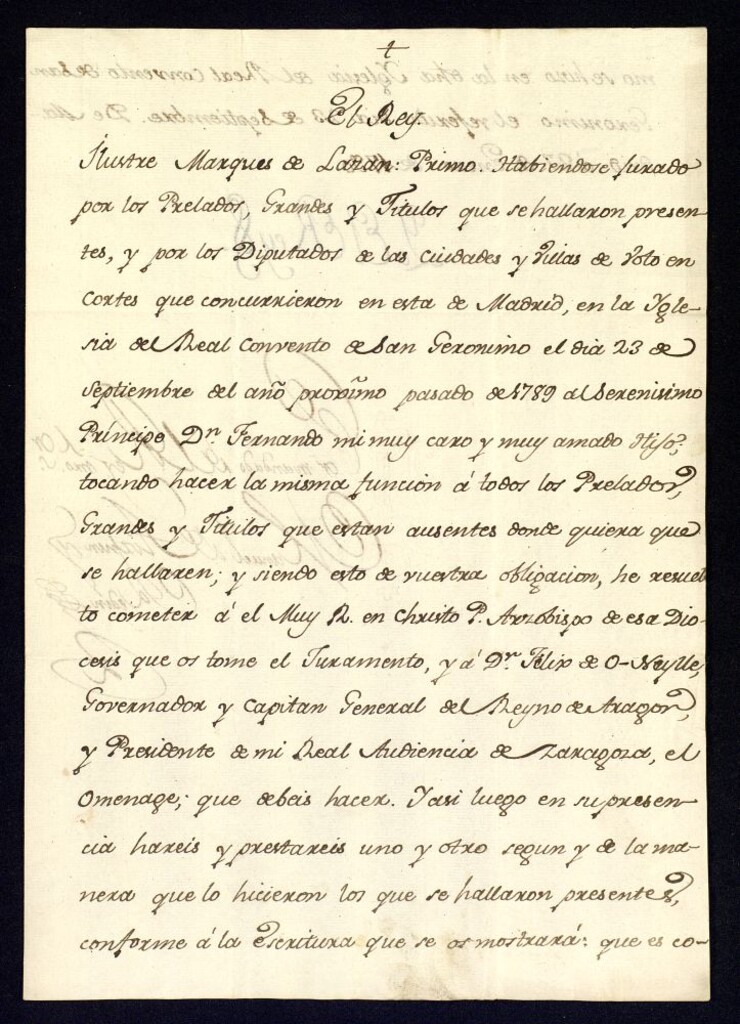 +
El Rey
Ilustre Marques de Lazán: Primo. Habiendose jurado
por los Prelados, Grandes y Titulos que se hallaron presen-
tes, y por los Diputados de las Ciudades y Villas de Voto en
Cortes que concurrieron en esta de Madrid, en la Ygle-
sia del Real Convento de San Geronimo el dia 23 de
Septiembre del año proximo pasado de 1789 al Serenisimo
Príncipe Dn. Fernando mi muy caro y muy amado Hijo,
tocando hacer la misma función á todos los Prelados,
Grandes y Titulos que estan ausentes donde quiera que
se hallaren; y siendo esto de vuestra obligacion, he resuel
to cometer á el Muy R. en Christo P. Arzobispo de esa Dio-
cesis que os tome el Juramento, y á Dn. Felix de O-Neylle,
Governador y Capitan General del Reyno de Aragon,
y Presidente de mi Real Audiencia de Zaragoza, el
Omenage; que debeis hacer. Y asi luego en su presen-
cia hareis y prestareis uno y otro segun y de la ma-
nera que lo hicieron los que se hallaron presentes,
conforme á la Escritura que se os mostrará: que es co-